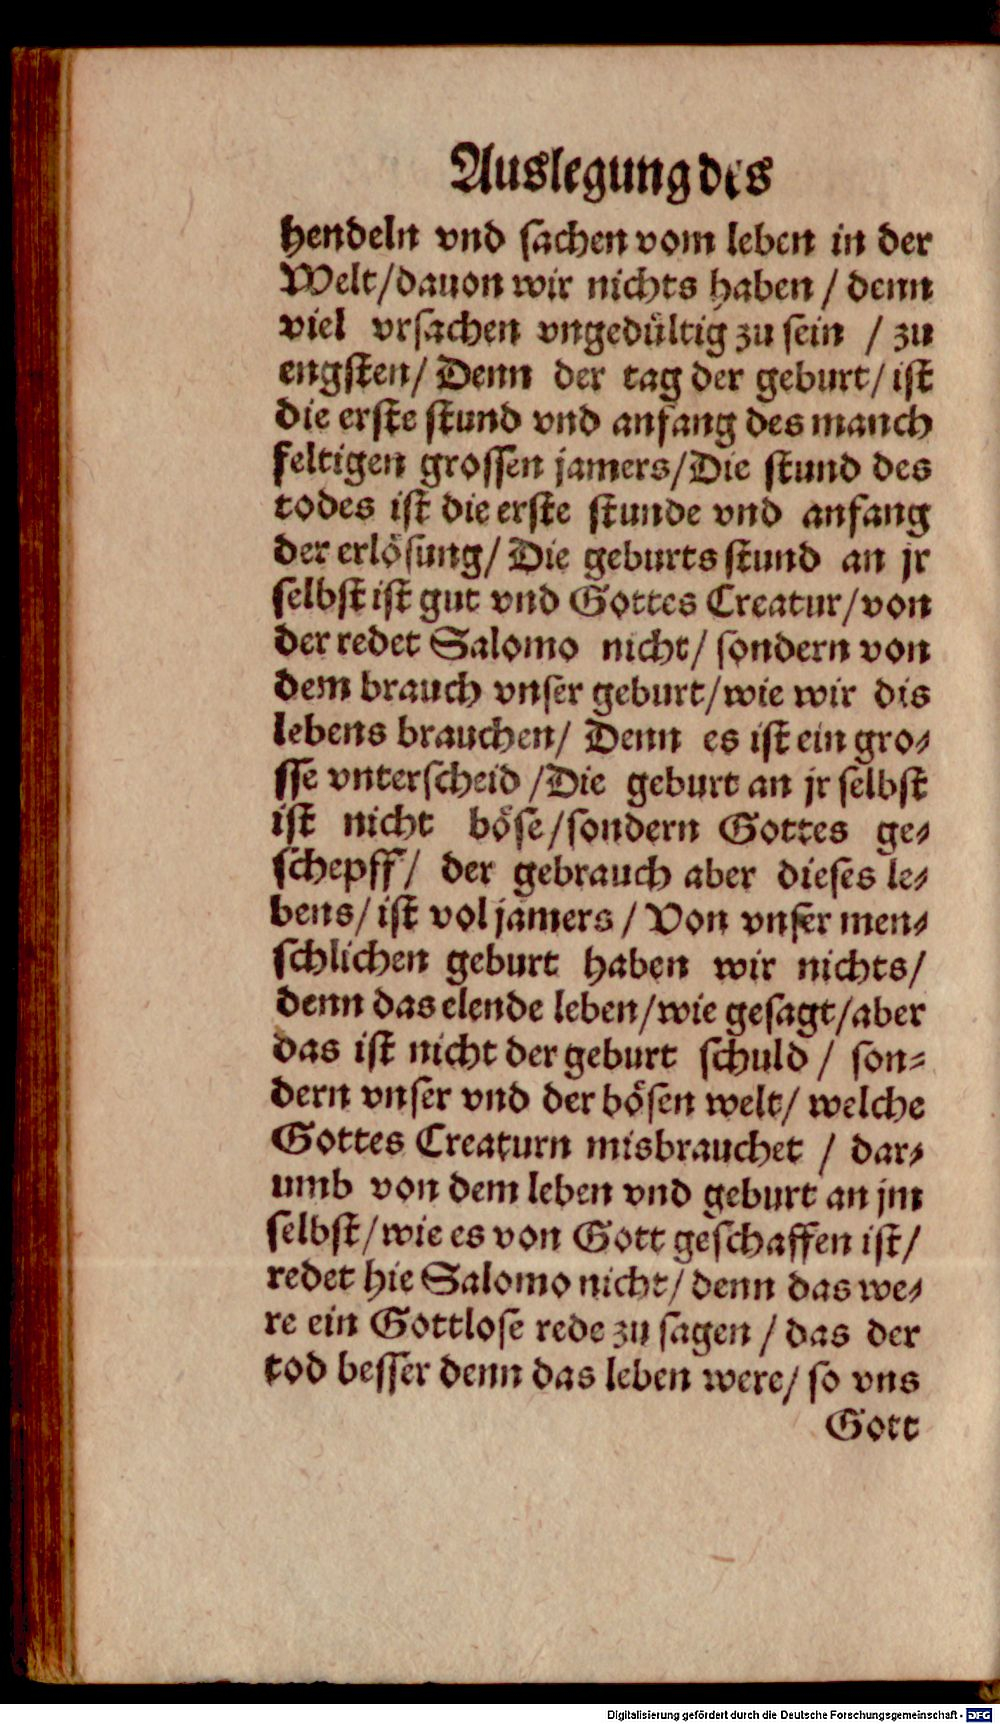 Auslegung des
hendeln vnd sachen vom leben in der
Welt/dauon wir nichts haben / denn
viel vrsachen vngedültig zu sein / zu
engsten/ Denn der tag der geburt/ ist
die erste stund vnd anfang des manch
feltigen grossen jamers/Die stund des
todes ist die erste stunde vnd anfang
der erlösung/ Die geburts stund an jr
selbst ist gut vnd Gottes Creatur/von
der redet Salomo nicht/ sondern von
dem brauch vnser geburt/wie wir dis
lebens brauchen/ Denn es ist ein gro-
sse vnterscheid /Die geburt an jr selbst
ist nicht böse/sondern Gottes ge-
schepff/ der gebrauch aber dieses le-
bens/ ist vol jamers / Von vnser men-
schlichen geburt haben wir nichts/
denn das elende leben/wie gesagt/aber
das ist nicht der geburt schuld / son-
dern vnser vnd der bösen welt/ welche
Gottes Creaturn misbrauchet / dar-
umb von dem leben vnd geburt an jm
selbst/wie es von Gott geschaffen ist/
redet hie Salomo nicht/ denn das we-
re ein Gottlose rede zu sagen / das der
tod besser denn das leben were/ so vns
Gott
Digitalisierung gefördert durch die Deutsche Forschungsgemeinschaft - DFG